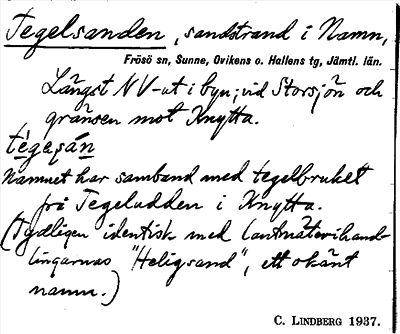 Tegelsanden, sandstrand i Namn,
Frösö sn, Sunne, Ovikens o. Hallens tg, Jämtl. län.
Längst NV-ut i byn; vid Storsjön och
gränsen mot Knytta.
tegasán
Namnet har samband med tegelbruket
på Tegeludden i Knytta.
(Tydligen identisk med lantmäterihand-
lingarnas "Heligsand", ett okänt
namn.)
C. LINDBERG 1937.